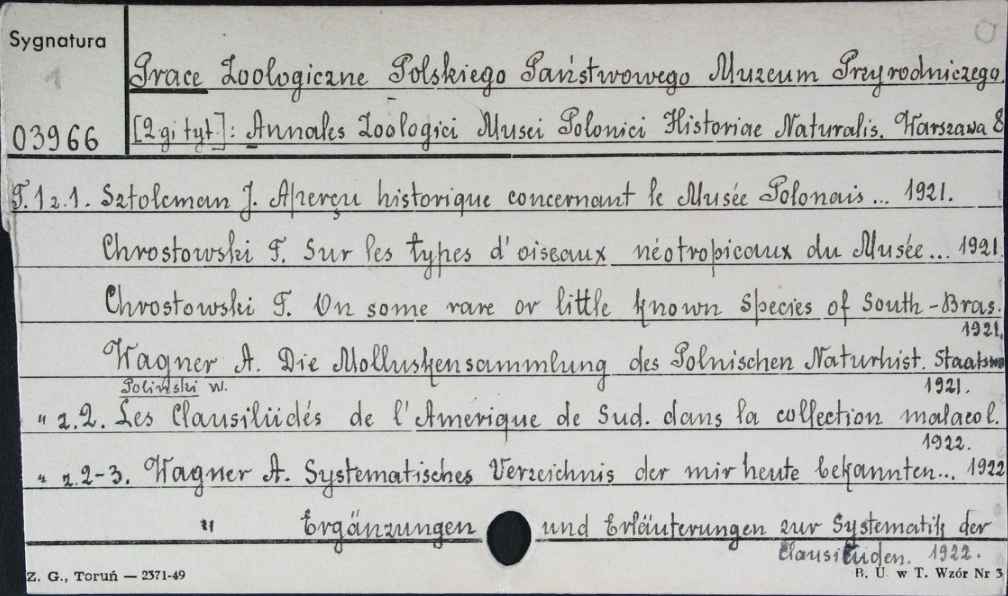 Sygnatura
1
03966
Prace Zoologiczne Polskiego Państwowego Muzeum Przyrodniczego.
[2gi tyt.]: Annales Zoologici Musei Polonici Historiae Naturalis. Warszawa 8
T.1 z.1. Sztolcman J. Aperçu historique concernant le Musée Polonais... 1921.
Chrostowski T. Sur les types d'oiseaux néotropicaux du Musée... 1921
Chrostowski T. On some rare or little known species of South-Bras.
1921.
Wagner A. Die Molluskensammlung des Polnischen Naturhist. Staats
1921.
Poliński W.
" z.2. Les Clausiliidés de l'Amérique de Sud. dans la collection malacol.
1922.
" z.2-3. Wagner A. Systematisches Verzeichnis der mir heute bekannten... 1922
" Ergänzungen und Erläuterungen zur Systematik der
Clausiliiden. 1922.
Z. G., Toruń — 2371-49
B. U. w T. Wzór Nr 3